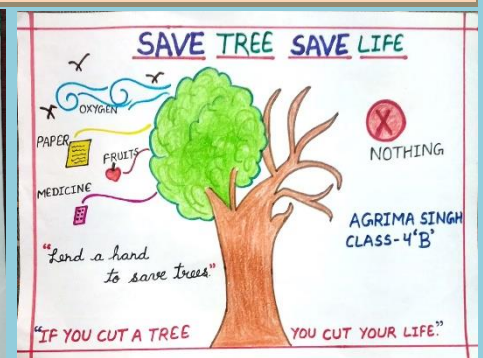 SAVE TREE SAVE LIFE
OXYGEN
PAPER
FRUITS
MEDICINE
X
NOTHING
AGRIMA SINGH
CLASS-4'B'
"Lend a hand
to save trees"
"IF YOU CUT A TREE YOU CUT YOUR LIFE."